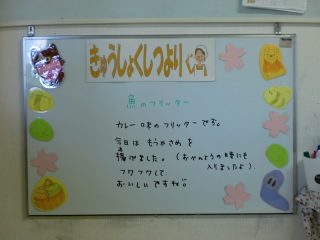 きゅうしょくしつより
魚のフリッター
カレー味のフリッターです。
今日は もうかさめ を
揚げました。(おべんとうの時にも
入りましたよ)
フワフワして、
おいしいですね。